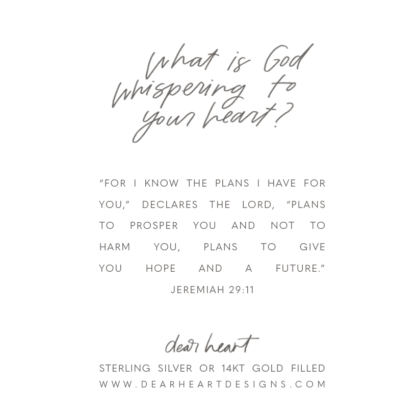 What is God
Whispering to
your heart?
"FOR I KNOW THE PLANS I HAVE FOR
YOU," DECLARES THE LORD, "PLANS
TO PROSPER YOU AND NOT TO
HARM YOU, PLANS TO GIVE
YOU HOPE AND A FUTURE."
JEREMIAH 29:11
dear heart
STERLING SILVER OR 14KT GOLD FILLED
WWW.DEARHEARTDESIGNS.COM